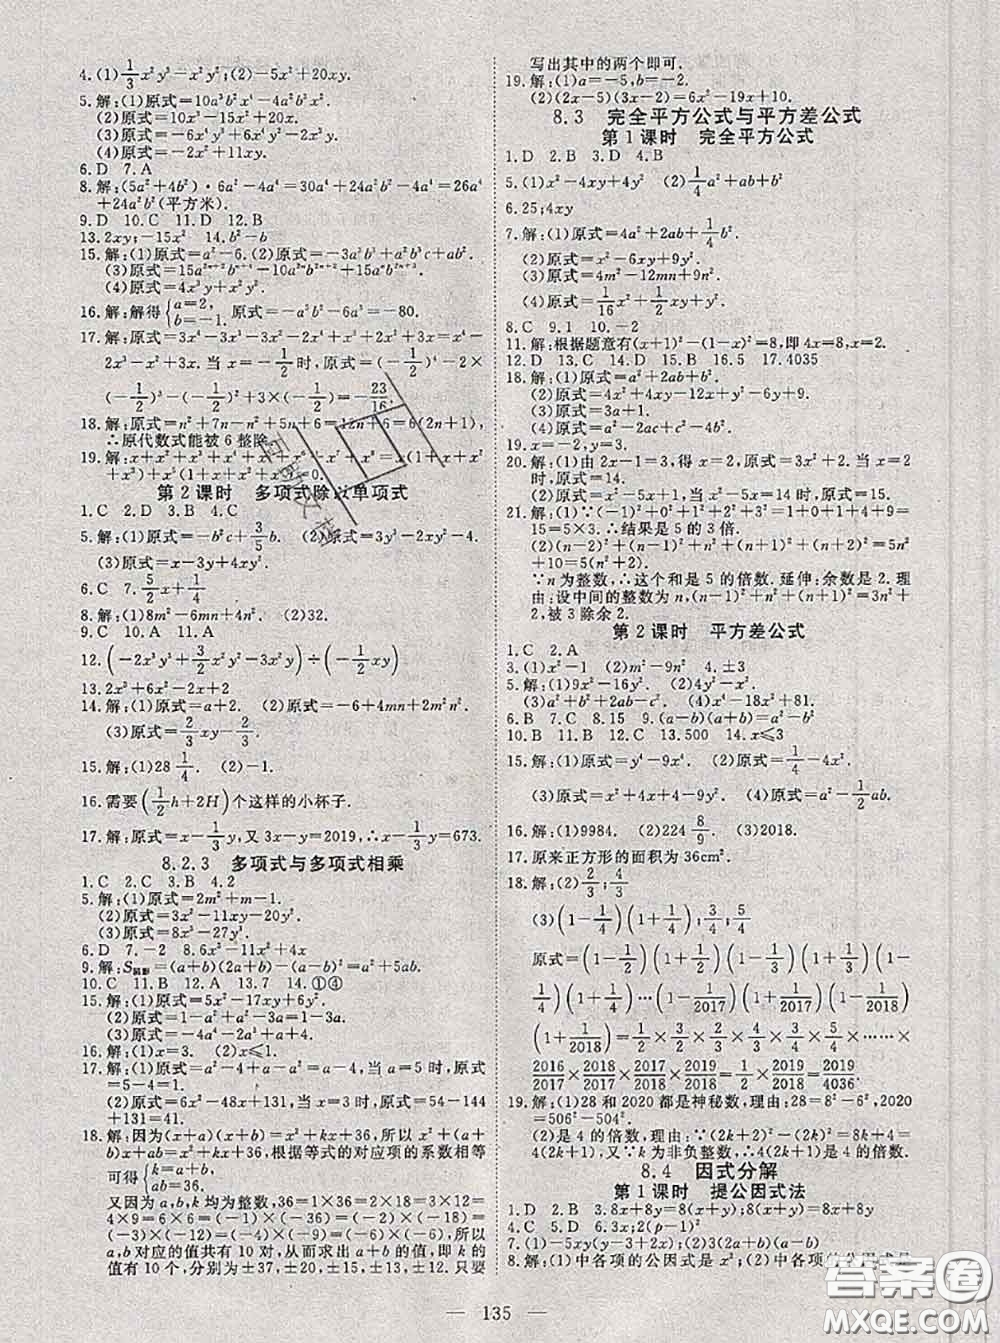 4.(1)1/3x²y³-x²y²;(2)-5x²+20xy.
5.解:(1)原式=10a³b²-8a²b³.
(2)原式=10x³-15x².
(3)原式=6x⁴-18x³+2x².
(4)原式=-2x²+11xy.
6.D 7.A
8.解:(5a²+4b²)·6a²-4a⁴=30a⁴+24a²b²-4a⁴=26a⁴
+24a²b²(平方米).
9.D 10.C 11.D 12.B
13.2xy;-15x² 14.b²-b
15.解:(1)原式=a²-6.
16.解:解得{a=2,
b=-1.
原式=-a⁵b⁴-6a³=-80.
17.解:原式=3x⁴-3x³-3x²-2x⁴+3x³+3x=x⁴-
2x²+3x. 当 x=-1/2时,原式=(-1/2)⁴-2×
(-1/2)²+3×(-1/2)=-23/16.
18.解:原式=n²+7n-n²+5n+6=12n+6=6(2n+1),
∴原代数式能被 6 整除.
第 2 课时 多项式除以单项式
1.C 2.D 3.B 4.C
5.解:(1)原式=-b²c+3/5b. (2)原式=3y³-2xy²-4.
(3)原式=x-3y.
6.C 7.5/2x+1/4
8.解:(1)8m²-6mn+4n². (2)32.
9.C 10.A 11.A
13.2x³+6x²-2x+2
14.解:(1)原式=a+2. (2)原式=-6+4mn+2m²n².
(3)原式=2/3xy-2/3.
15.解:(1)28 1/4. (2)-1.
16.需要(1/2h+2H)个这样的小杯子.
17.解:原式=x-1/3y,又 3x-y=2019,∴x-1/3y=673.
8.2.3 多项式与多项式相乘
1.C 2.C 3.B 4.2
5.解:(1)原式=2m²+m-1.
(2)原式=3x²-11xy-20y².
(3)原式=8x³-27y³.
6.D 7.-2 8.6x³-11x²+4x
9.解:S阴影=(a+b)(2a+b)-(a-b)(2a-b)... 
10.C 11.B 12.A 13.7 14.①④
15.解:(1)原式=5x²-17xy+6y².
(2)原式=1-a²+a-a³.
(3)原式=-4a⁴-2a³+a+4.
16.解:(1)x=3. (2)x≤1.
17.解:(1)原式=a²-4+a-a²=-4+a,当 a=5 时,原式
=5-4=1.
(2)原式=6x²-48x+131,当 x=3 时,原式=54-144
+131=41.
18.解:因为(x+a)(x+b)=x²+kx+36,所以 x²+(a+
b)x+ab=x²+kx+36,根据等式的对应项的系数相等
可得{k=a+b,
ab=36.
又因为 a,b,k 均为整数,36=1×36=2×18=3×12=
4×9=6×6=(-1)×(-36)=(-2)×(-18)=
(-3)×(-12)=(-4)×(-9)=(-6)×(-6),所以
a,b 对应的值共有 10 对,从而求出 a+b 的值,即 k 的
值有 10 个,分别为±37,±20,±15,±13,±12,只要
写出其中的两个即可.
19.解:(1)a=-5,b=-2.
(2)(2x-5)(3x-2)=6x²-19x+10.
8.3 完全平方公式与平方差公式
第 1 课时 完全平方公式
1.D 2.B 3.D 4.B
5.(1)x²-4xy+4y² (2)1/4a²+ab+b²
6.25;4xy
7.解:(1)原式=4a²+2ab+1/4b².
(2)原式=x²-6xy+9y².
(3)原式=4m²-12mn+9n².
(4)原式=1/16x²+1/2xy+y².
8.C 9.1 10.-2
11.解:根据题意有(x+1)²-(1-x)²=8,即 4x=8,x=2.
12.D 13.C 14.D 15.B 16.5 17.4035
18.解:(1)原式=a²+2ab+b².
(2)原式=4x²-12x-y²+6y+9.
(3)原式=3a+1.
(4)原式=-2ab-2b².
20.解:(1)由 2x-1=3,得 x=2,原式=3x²+2. 当 x=2
时,原式=14.
(2)原式=x²-5,当 x=4 时,原式=11.
21.解:(1)∵(-1)²+0²+1²+2²+3²=1+0+1+4+9=
15=5×3.∴结果是 5 的 3 倍.
(2)(n-2)²+(n-1)²+n²+(n+1)²+(n+2)²=5n²
+10=5(n²+2).
∵n 为整数,∴这个和是 5 的倍数. 延伸:余数是 2. 理
由:设中间的整数为 n,(n-1)²+n²+(n+1)²=3n²+
2,被 3 除余 2.
第 2 课时 平方差公式
1.C 2.A
3.(1)x²-1 (2)m²-9n² 4.±3
5.解:(1)9x²-16y². (2)4y²-x².
(3)a²+b²+2ab-c². (4)x⁴-18x²+81.
6.B 7.C 8.15 9.(a-b)(a+b)=a²-b²
10.B 11.B 12.A 13.500 14.x≤3
15.解:(1)原式=y⁴-9x⁴. (2)原式=1/4-4x².
(3)原式=5x²-12xy+10y². (4)原式=a²-1/2ab.
16.解:(1)9984. (2)224 8/9. (3)2018.
17.原来正方形的面积为 36cm².
18.解:(2)2/3;4/3
(3)(1-1/4)(1+1/4);3/4;5/4
原式=(1-1/2)(1+1/2)(1-1/3)(1+1/3)(1-
1/4)(1+1/4)…(1-1/2017)(1+1/2017)(1-1/2018)
(1+1/2018)=1/2×3/2×2/3×4/3×3/4×5/4×…×
2016/2017×2018/2017×2017/2018×2019/2018=1/2×2019/2018=2019/4036.
19.解:(1)28 和 2020 都是神秘数,理由:28=8²-6²,2020
=506²-504².
(2)是 4 的倍数,理由:∵(2k+2)²-(2k)²=8k+4=
4(2k+1),又∵k 为非负整数,∴4(2k+1)是 4 的倍数.
8.4 因式分解
第 1 课时 提公因式法
1.D 2.B 3.8x+8y=8(x+y);8(x+y)=8x+8y
4.C 5.D 6.3x;2(p-1)²
7.(1)-5xy(y-3x+2);(2)3(2a+b)(a-b)
8.解:(1)中各项的公因式是 x²;(2)中各项的公因式是
— 135 —
答案圈
MXQE.COM